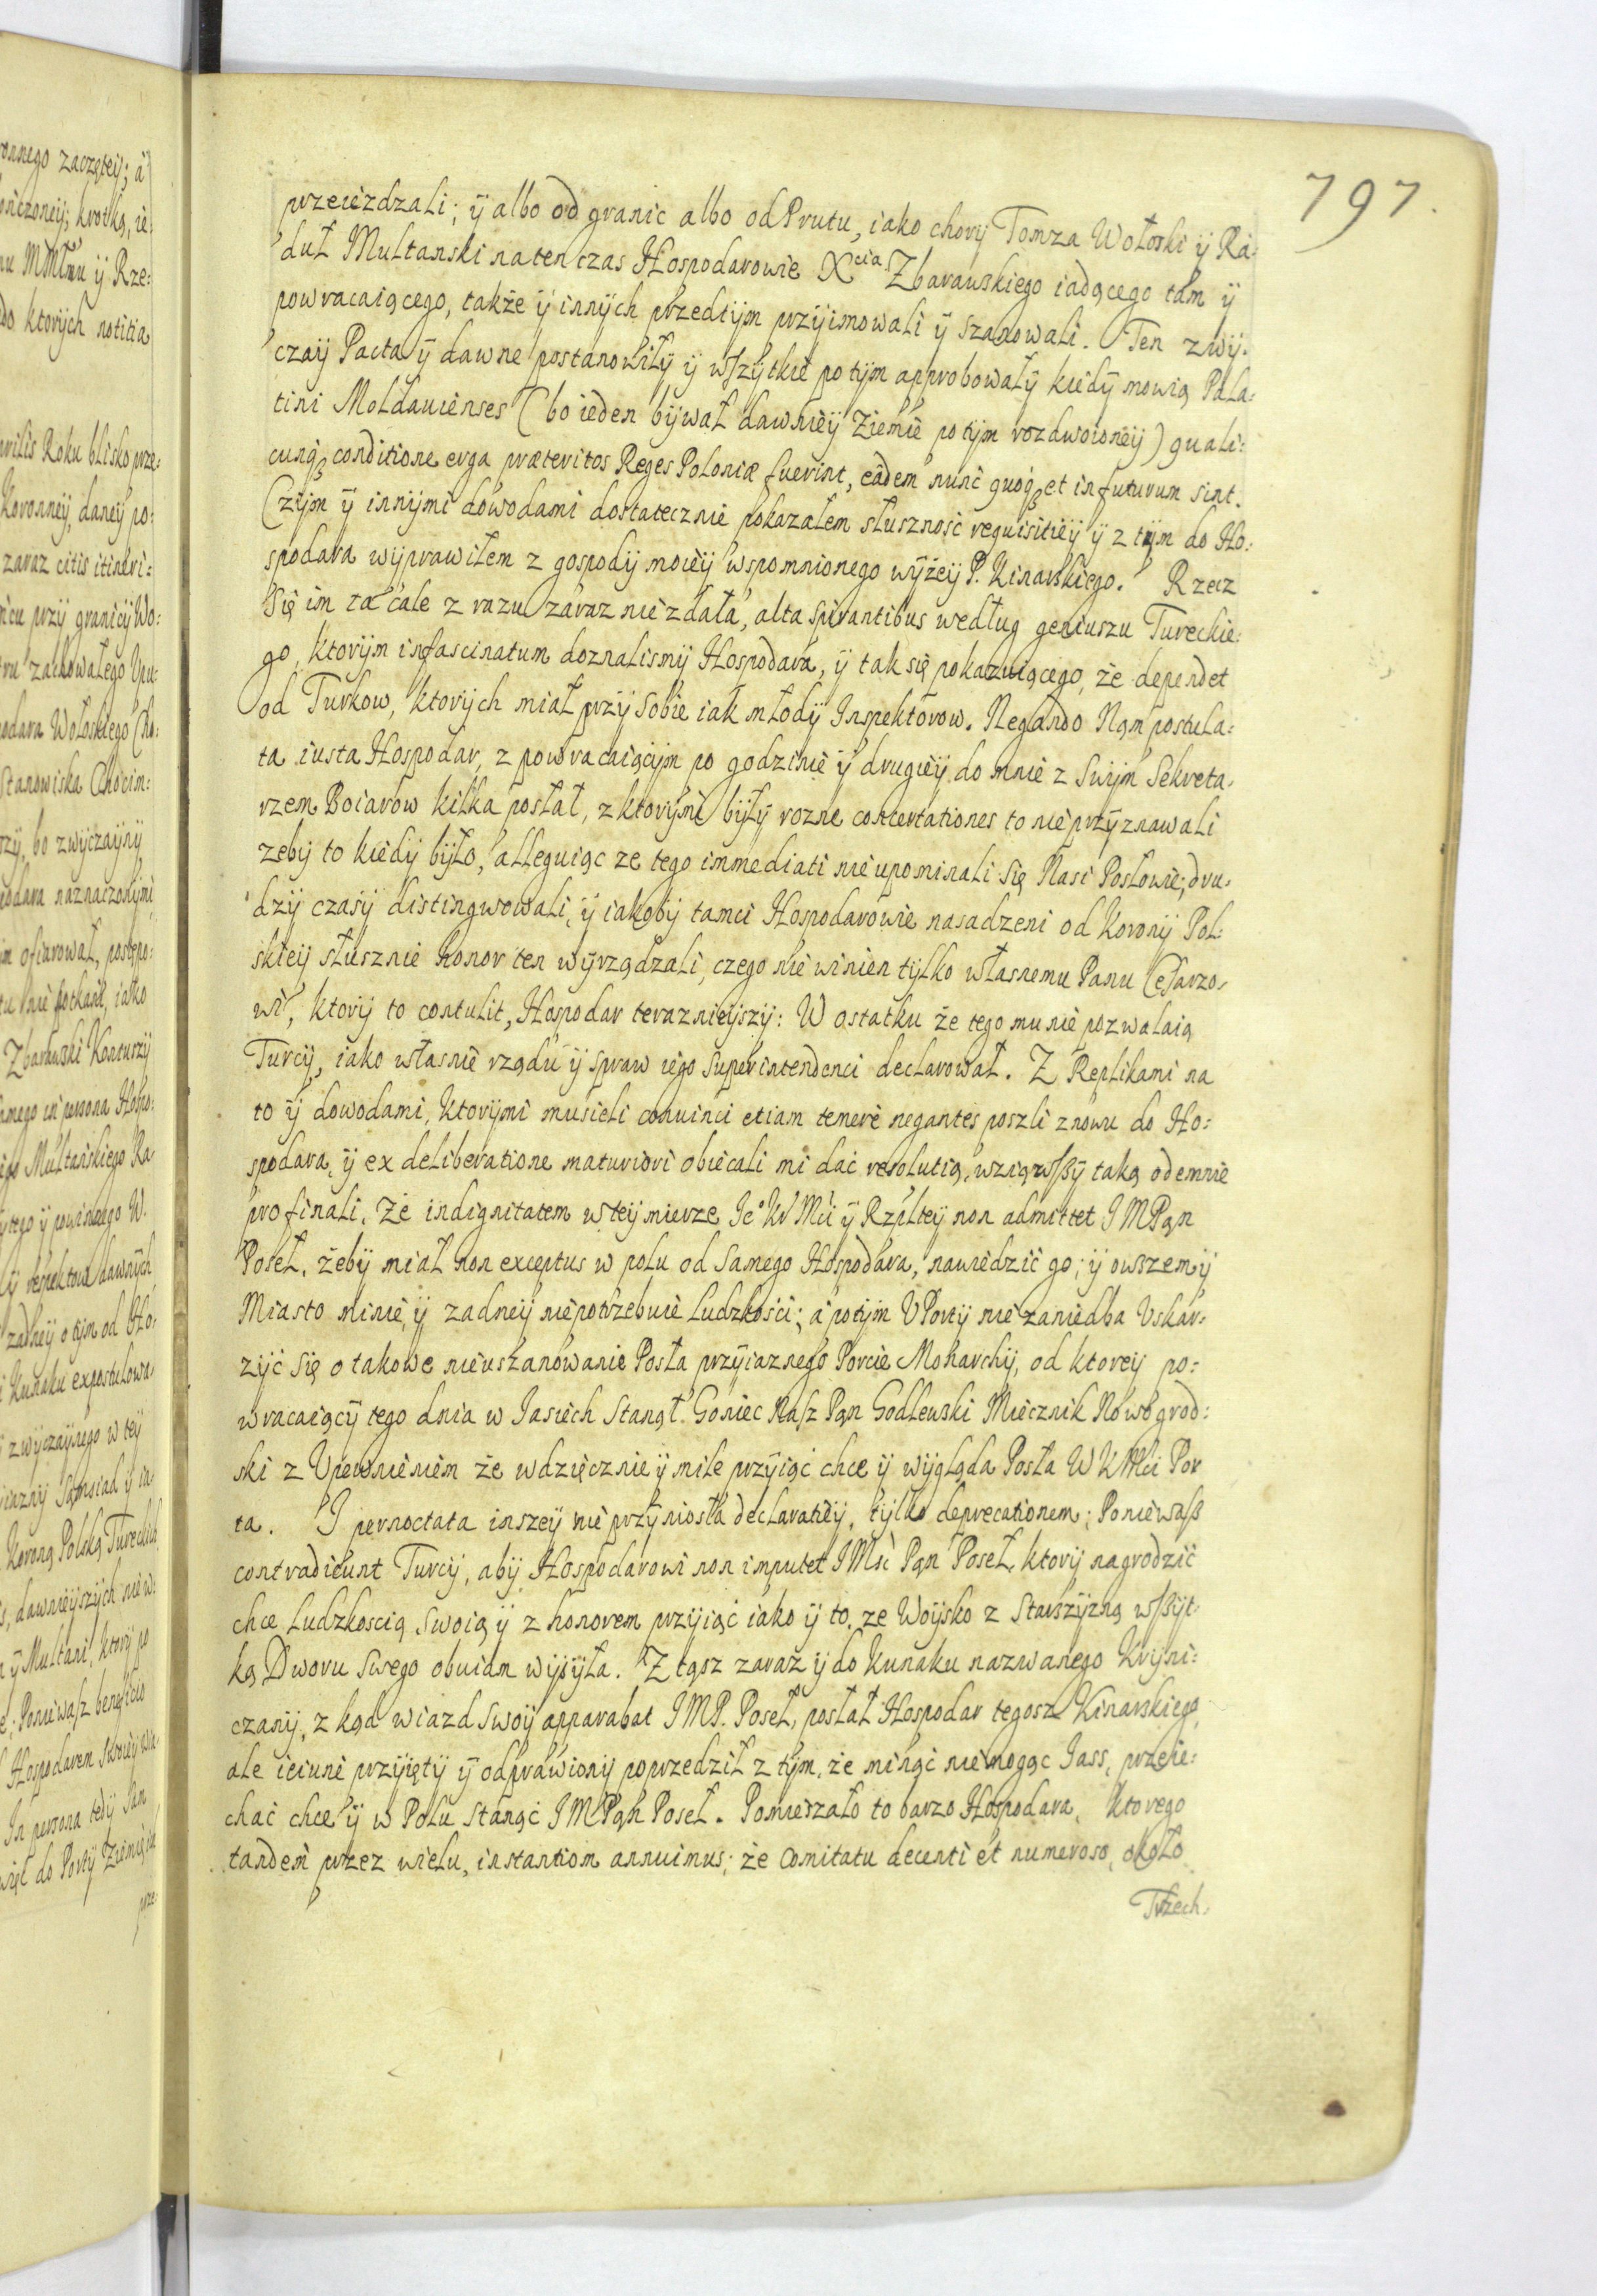 797.
przeieżdzali; ÿ albo od granic albo od Prutu, iako chorÿ Tomza Wołoski ÿ Ra:
duł Multanski na ten czas Hospodarowie Xcia Zbarawskiego iadącego tam ÿ
powracaiącego, także ÿ innÿch przedtÿm przÿimowali ÿ szanowali. Ten zwÿ:
czaÿ Pacta ÿ dawne postanowiłÿ ÿ wszÿtkie potÿm approbowałÿ kiedÿ mowią Pala:
tini Moldauienses (bo ieden bÿwał dawnieÿ Ziemie potÿm rozdwoioneÿ) quali:
cunq conditione erga præteritos Reges Poloniæ fuerint, eâdem nunc quoq et in futurum sint.
Czÿm ÿ innÿmi dowodami dostatecznie pokazałem słuszność requisitieÿ ÿ z tÿm do Ho:
spodara wÿprawiłem z gospodÿ moieÿ wspomnionego wÿżeÿ P. Kinarskiego. Rzecz
się im ta cale z razu zaraz nie zdała, alta spirantibus według geniuszu Tureckie:
go, ktorÿm infascinatum doznalismÿ Hospodara, ÿ tak się pokazuiącego, że dependet
od Turkow, ktorÿch miał przÿ sobie iak młodÿ Inspektorow. Negando Nąm postula:
ta iusta Hospodar, z powracaiącÿm po godzinie ÿ drugieÿ do mnie z swÿm Sekreta:
rzem Boiarow kilka posłał, z ktorÿmi bÿłÿ rozne concertationes to nie przÿznawali
zebÿ to kiedÿ bÿło, alleguiąc ze tego immediati nie upominali się Nasi Posłowie; dru:
dzÿ czasÿ distingwowali, ÿ iakobÿ tamci Hospodarowie nasadzeni od Koronÿ Pol:
skieÿ słusznie honor ten wÿrządzali, czego nie winien tÿlko własnemu Panu Cesarzo:
wi, ktorÿ to contulit, Hospodar teraznieÿszÿ: W ostatku że tego mu nie pozwalaią
Turcÿ, iako własnie rządu ÿ spraw iego superintendenci declarował. Z Replikami na
to ÿ dowodami, ktorÿmi musieli conuinci etiam temerè negantes poszli znowu do Ho:
spodara, ÿ ex deliberatione maturiori obiecali mi dać resolutią, wziąwszÿ taką odemnie
pro finali. Że indignitatem w teÿ mierze Ie° Kr Mci ÿ Rzpltey non admittet IMPąn
Poseł, żebÿ miał non exceptus w polu od samego Hospodara, nawiedzić go; ÿ owszem ÿ
Miasto minie, ÿ zadneÿ niepotrzebuie Ludzkości; à potÿm V Portÿ nie zaniedba Vskar:
zÿć się o takowe nieuszanowanie Posła przÿiaznego Porcie Monarchÿ, od ktoreÿ po:
wracaiącÿ tego dnia w Iasiech Stanął. Goniec Nasz Pąn Godlewski Miecznik Nowogrod:
ski z Vpewnieniem że wdzięcznie ÿ mile przÿiąć chce ÿ wÿgląda Posła WKMci Por
ta. I pernoctata inszeÿ nie przÿniosła declaratieÿ, tÿlko deprecationem; Ponieważ
contradicunt Turcÿ, abÿ Hospodarowi non imputet IMsci Pąn Poseł, ktorÿ nagrodzić
chce Ludzkoscią swoią ÿ z honorem przÿiąć iako ÿ to, ze Woÿsko z Starszÿzną wszÿt:
ką Dworu swego obuiam wÿsÿła. Z tąsz zaraz ÿ do Kunaku nazwanego Krÿni:
czanÿ, z kąd wiazd swoÿ apparabat IMP. Poseł, posłał Hospodar tegosz Kinarskiego,
ale ieiunè przÿiętÿ ÿ odprawionÿ poprzedził z tÿm, że minąć niemogąc Iass, przeie:
chać chce ÿ w Polu stanąć IMPąn Poseł. Pomieszało to barzo Hospodara, ktorego
tandem przez wielu, instantiom annuimus; że Comitatu decenti et numeroso, około
Trzech.